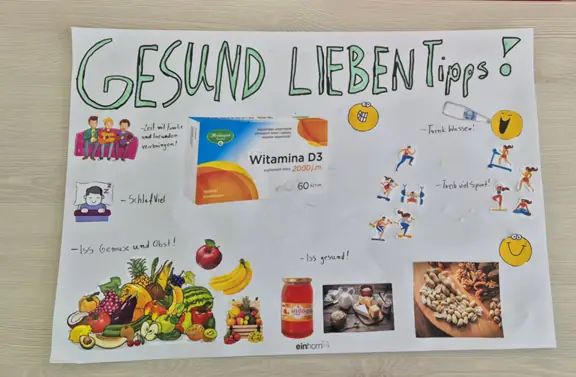 GESUND LIEBEN Tipps!
- Zeit mit Familie
und Freunden
verbringen!
Witamina D3
2000 j.m.
60
- Trink Wasser!
- Schlaf Viel
- Treib viel Sport!
- Iss Gemüse und Obst!
- Iss gesund!
einhorn